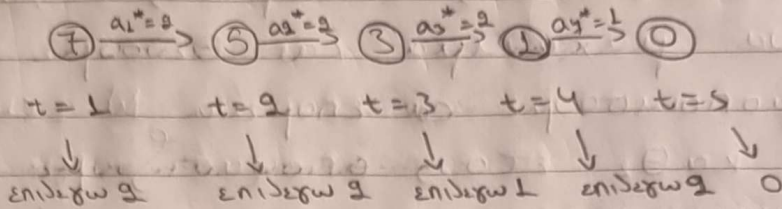 7 a₁*=2 → 5 a₂*=2 → 3 a₃*=2 → 1 a₄*=1 → 0
t=1 t=2 t=3 t=4 t=5
↓ ↓ ↓ ↓ ↓
επιλεγω 2 επιλεγω 2 επιλεγω 1 επιλεγω 2 0